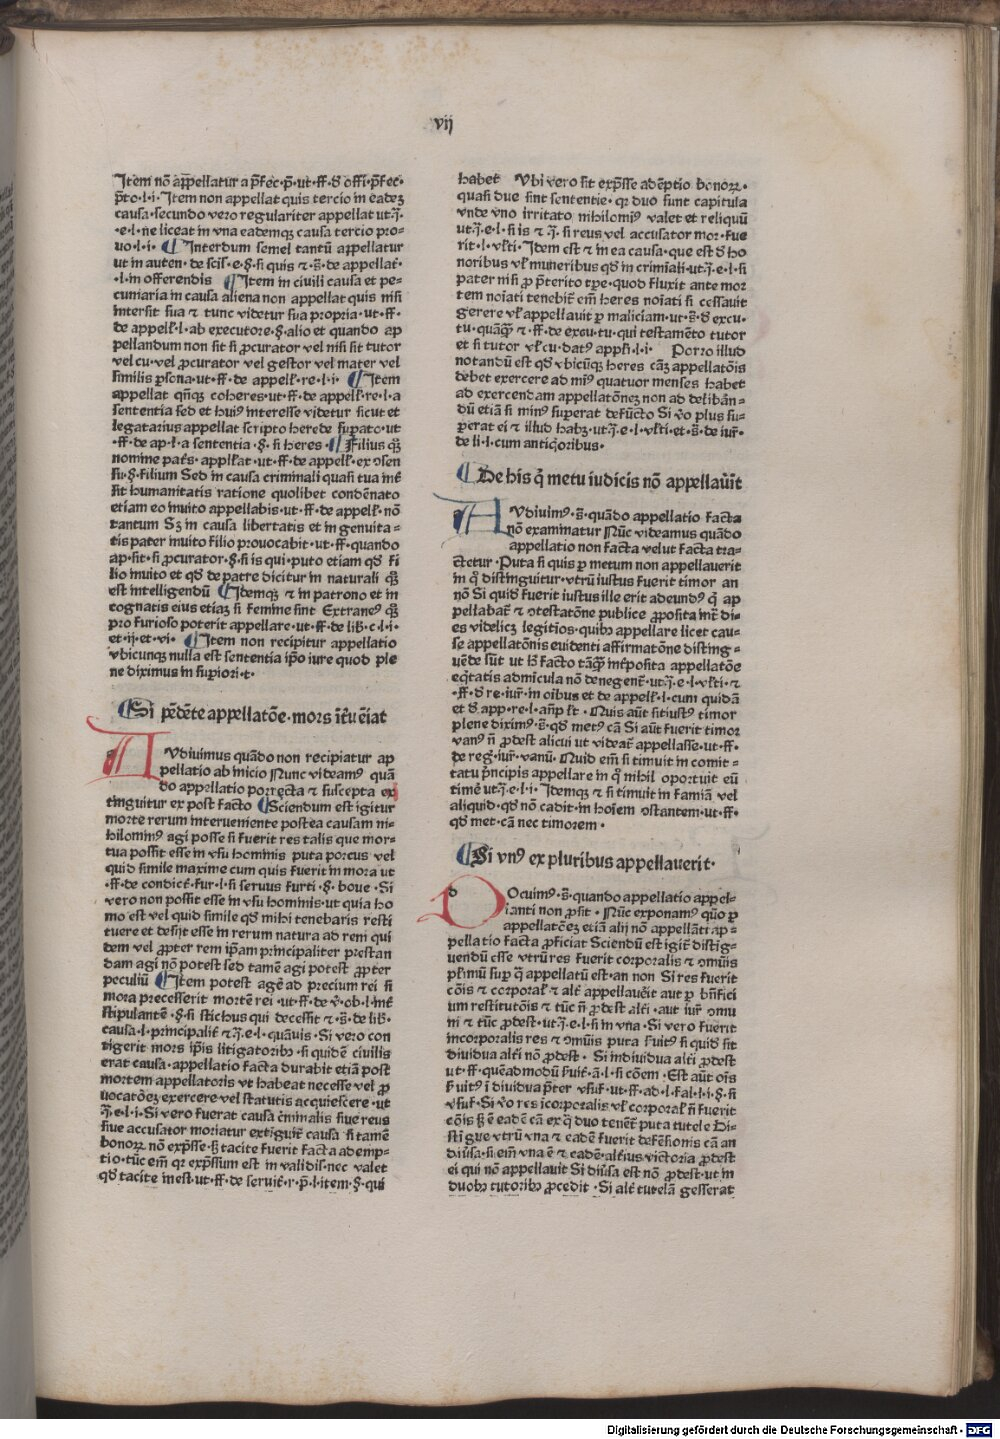 vij
Item nō appellatur a p̄fec·p̄·ut·ff·d̄ offi·p̄fec·
p̄to·l·i· Item non appellat quis tercio in eadeʒ
causa·secundo vero regulariter appellat ut·j̄·
·e·l·ne liceat in vna eademqʒ causa tercio pro-
uo·l·i· ¶ Interdum semel tantū appellatur
ut in auten·de scis·e·§·si quis ⁊·s̄·de appellat̄·
·l·in offerendis ¶ Item in ciuili causa et pe-
cuniaria in causa aliena non appellat quis nisi
intersit sua ⁊ tunc videtur sua propria·ut·ff·
de appell̄·l·ab executore·§·alio et quando ap
pellandum non sit si ꝓcurator vel nisi sit tutor
vel cu·vel ꝓcurator vel gestor vel mater vel
similis ꝑsona·ut·ff·de appell̄·re·l·i· ¶ Item
appellat qn̄qʒ coheres·ut·ff·de appell̄·re·l·a
sententia sed et huiꝰ interesse videtur sicut et
legatarius appellat scripto herede suꝑato·ut
·ff·de ap·l·a sententia·§·si heres·¶ Filius qʒ̄
nomine pat̄s·appl̄at·ut·ff·de appell̄·ex ↄsen
su·§·filium Sed in causa criminali quasi tua in̄t
sit humanitatis ratione quolibet condēnato
etiam eo inuito appellabis·ut·ff·de appell̄·nō
tantum Sʒ in causa libertatis et in genuita-
tis pater inuito filio prouocabit·ut·ff·quando
ap·sit·si ꝓcurator·§·si is qui·puto etiam qd̄ fi
lio inuito et qd̄ de patre dicitur in naturali qʒ̄
est intelligendū ¶ Idemqʒ ⁊ in patrono et in
cognatis eius etiaʒ si femine sint Extraneꝰ qʒ̄
pro furioso poterit appellare·ut·ff·de lib̄·c·l·i·
et·ij·et·vi· ¶ Item non recipitur appellatio
vbicunqʒ nulla est sententia ip̄o iure quod ple
ne diximus in suꝑiori·t·
¶ Si pēdēte appellatōe·mors īt̄uēiat
AVdiuimus quādo non recipiatur ap
pellatio ab inicio Nunc videamꝰ quā
do appellatio porrecta ⁊ suscepta ex
tinguitur ex post facto ¶ Sciendum est igitur
morte rerum interueniente postea causam ni-
hilominꝰ agi posse si fuerit res talis que mor-
tua possit esse in vsu hominis puta porcus vel
quid simile maxime cum quis fuerit in mora ut
·ff·de condict̄·fur·l·si seruus furti·§·boue·Si
vero non possit esse in vsu hominis·ut quia ho
mo est vel quid simile qd̄ mihi tenebaris resti
tuere et desijt esse in rerum natura ad rem qui
dem vel ꝓpter rem ip̄am principaliter prestan
dam agi nō potest sed tamē agi potest ꝓpter
peculiū ¶ Item potest agē ad precium rei si
mora precesserit mortē rei·ut·ff·de v̄·ob·l·in̄t
stipulantē·§·si stichus qui decessit ⁊·s̄·de lib̄·
causa·l·principalit̄ ⁊·j̄·e·l·quāuis·Si vero con
tigerit mors ip̄is litigatoribꝫ·si quidē ciuilis
erat causa·appellatio facta durabit etiā post
mortem appellatoris vt habeat necesse vel ꝓ
uocatōeʒ exercere vel statutis acquiescere·ut
·j̄·e·l·i·Si vero fuerat causa c̄minalis siue reus
siue accusator moriatur extiguit̄ causa si tamē
bonorꝝ nō exp̄sse·sʒ tacite fuerit facta ademp-
tio·tūc em̄ qꝛ exp̄ssum est in validis·nec valet
qd̄ tacite inest·ut·ff·de seruit̄·r·p̄·l·item·§·qui
habet Vbi vero sit exp̄sse adēptio bonorꝝ·
quasi due sint sententie·qꝛ duo sunt capitula
vnde vno irritato nihilominꝰ valet et reliquū
ut·j̄·e·l·si is ⁊·j̄·si reus vel accusator mor·fue
rit·l·vl̄ti·Idem est ⁊ in ea causa·que est d̄ ho
noribus vl̄ muneribus qd̄ in crimiali·ut·j̄·e·l·si
pater nisi ꝓ p̄terito tꝑe·quod fluxit ante mor
tem noīati tenebit̄ em̄ heres noīati si cessauit
gerere vl̄ appellauit ꝑ maliciam·ut·s̄·d̄ excu·
tu·quāqʒ̄ ⁊·ff·de excu·tu·qui testamēto tutor
et si tutor vl̄ cu·datꝰ app̄si·l·i· Porro illud
notandū est qd̄ vbicūqʒ heres cāʒ appellatōis
debet exercere ad minꝰ quatuor menses habet
ad exercendam appellatōneʒ non ad delibān-
dū etiā si minꝰ suꝑerat defūcto Si v̄o plus su-
ꝑerat ei ⁊ illud habʒ·ut·j̄·e·l·vl̄ti·et·s̄·de iur̄·
de li·l·cum antiqͥoribus·
¶ De his q̄ metu iudicis nō appellaūit
AVdiuimꝰ·s̄·quādo appellatio facta
nō examinatur Nūc videamus quādo
appellatio non facta velut facta tra-
ctetur·Puta si quis ꝑ metum non appellauerit
in q̄ distinguitur·vtrū iustus fuerit timor an
nō Si quid̄ fuerit iustus ille erit adeundꝰ q̄ ap
pellabat̄ ⁊ ↄtestatōne publice ꝓposita int̄ di-
es videlicʒ legitios·quibꝫ appellare licet cau-
se appellatōnis euidenti affirmatōne disting-
uēde sūt ut lʒ facto tāqʒ̄ int̄posita appellatōe
eqͥtatis admicula nō denegent̄·ut·j̄·e·l·vl̄ti·⁊
·ff·d̄ re·iur̄·in oībus et de appell̄·l·cum quidā
et d̄ app·re·l·an̄p l̄t·Quis aūt sit iustꝰ timor
plene diximꝰ·s̄·qd̄ metꝰ cā Si aūt fuerit timor
vanꝰ n̄ ꝓdest alicui ut videat̄ appellasse·ut·ff·
de reg·iur̄·vanū·Quid em̄ si timuit in comit-
tatu p̄ncipis appellare in q̄ nihil oportuit eū
timē ut·j̄·e·l·i·Idemqʒ ⁊ si timuit infamiā vel
aliquid·qd̄ nō cadit in hoīem ↄstantem·ut·ff·
qd̄ met·cā nec timorem·
¶ Si vnꝰ ex pluribus appellauerit·
DOcuimꝰ·s̄·quando appellatio appel-
lanti non ꝓsit·Nūc exponamꝰ qūo ꝑ
appellatōeʒ etiā alij nō appellāti ap-
pellatio facta ꝓficiat Sciendū est igit̄ distig-
uendū esse vtrū res fuerit corporalis ⁊ ↄmūis
pl̄imū suꝑ q̄ appellatū est·an non Si res fuerit
cōis ⁊ corporal̄ ⁊ alt̄ appellaūit aut ꝑ bn̄fici
um restitutōis ⁊ tūc n̄ ꝓdest alt̄i·aut iur̄ ↄmu
ni ⁊ tūc ꝓdest·ut·j̄·e·l·si in vna·Si vero fuerit
incorporalis res ⁊ ↄmūis puta s̄uitꝰ si quid̄ sit
diuidua alt̄i nō ꝓdest·Si indiuidua alt̄i ꝓdest
ut·ff·quēadmodū s̄uit̄·ā·l·si cōem·Est aūt oīs
s̄uitꝰ īdiuidua p̄ter vsuf̄·ut·ff·ad·l·fal·l·i·§·si
vsuf̄·Si v̄o res īcorporalis vl̄ corporal̄ n̄ fuerit
cōis sʒ ē eadē cā ex q̄ duo tenēt̄ puta tutele Di-
stīgue vtrū vna ⁊ eadē fuerit defēsionis cā an
diūsa·si em̄ vna ē ⁊ eadē·alt̄ius victoria ꝓdest
ei qui nō appellauit Si diūsa est nō ꝓdest·ut in
duobꝫ tutoribꝫ ꝓcedit·Si alt̄ tutelā gesserat
Digitalisierung gefördert durch die Deutsche Forschungsgemeinschaft - DFG